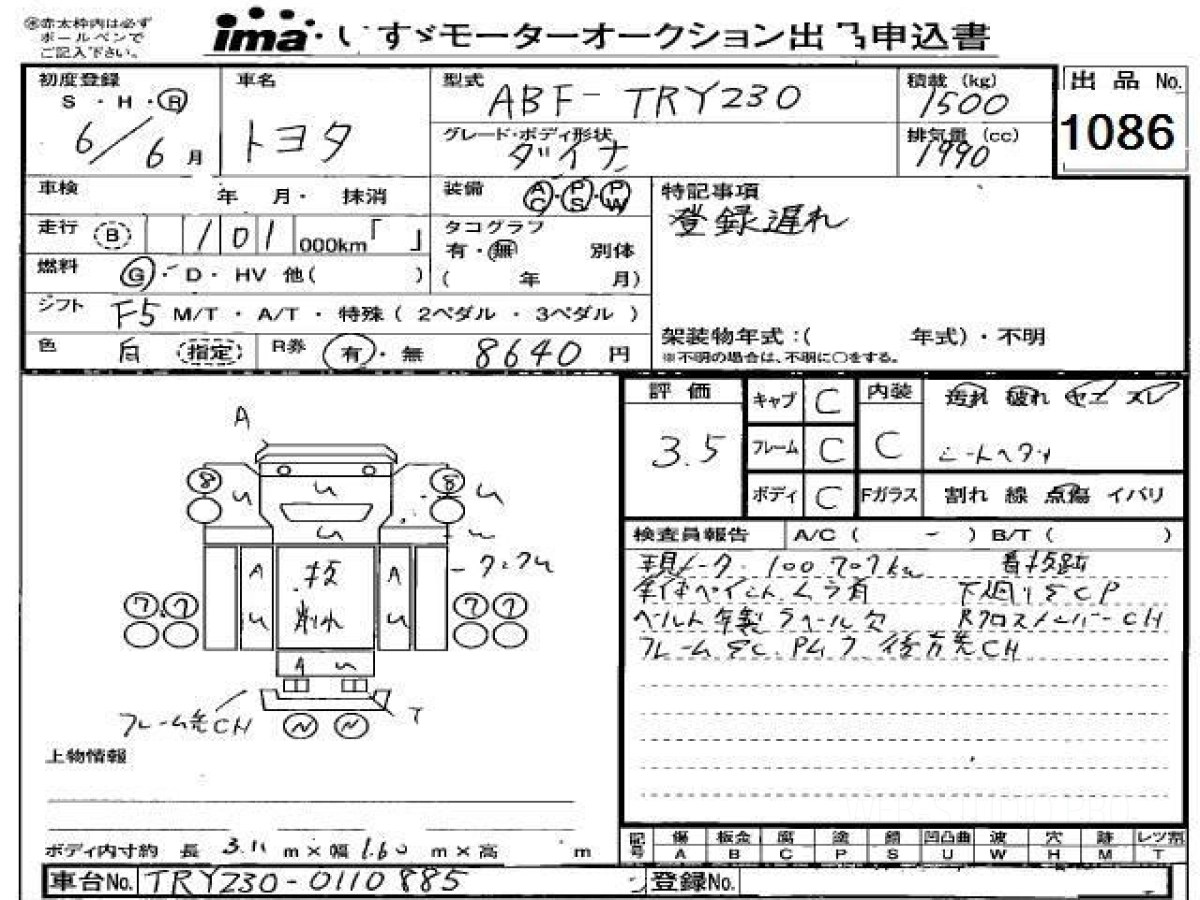 ㊟赤太枠内は必ず
ボールペンで
ご記入下さい。
ima・いすゞモーターオークション出品申込書
初度登録
S・H・R
6/6月
車名
トヨタ
型式
ABF-TRY230
グレード・ボディ形状
ダイナ
積載 (kg)
1500
排気量 (cc)
1990
出品 No.
1086
車検 年 月・ 抹消
装備 AC・PS・PW
特記事項
登録遅れ
走行 B 101 000km「 」
タコグラフ
有・無 別体
( 年 月)
燃料 G・D・HV 他( )
シフト F5 M/T ・ A/T ・ 特殊 ( 2ペダル ・ 3ペダル )
色 白 指定 R券 有・無 8640 円
架装物年式:( 年式)・不明
※不明の場合は、不明に○をする。
評価
3.5
キャブ C
フレーム C
ボディ C
内装
C
汚れ 破れ ヤニ スレ
Fガラス 割れ 線 点傷 イバリ
検査員報告 A/C ( - ) B/T ( )
現メーター 100707km 看板跡
下廻りSCP
ラベル欠 RクロスメンバーCH
フレームSC.
A
8
8
A
A
7 7
7 7
A
フレーム先CH
T
上物情報
ボディ内寸約 長 3.11 m×幅 1.60 m×高 m
記号 傷 板金 腐 塗 錆 凹凸曲 波 穴 跡 レツ割
A B C P S U W H M T
車台No. TRY230-0110885
登録No.